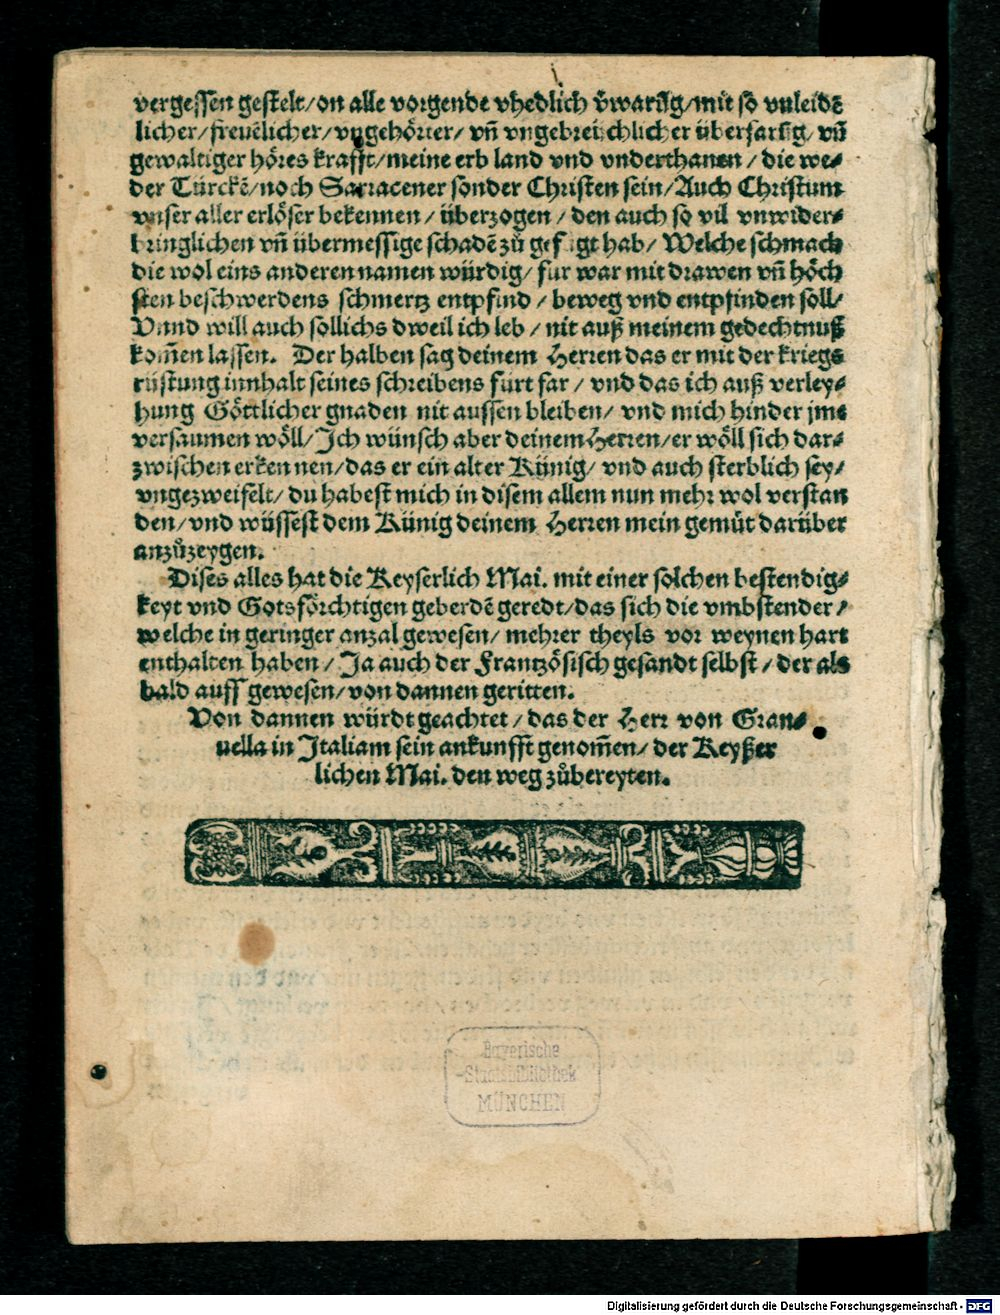 vergessen gestelt/on alle vorgende vhedlich v̈warnūg/mit so vnleidē
licher/freuēlicher/vngehörter/vn̄ vngebreuchlicher überfarūg/vn̄
gewaltiger höres krafft/meine erb land vnd vnderthanen/die we⸗
der Türckē/noch Sarracener sonder Christen sein/Auch Christum
vnser aller erlöser bekennen/überzogen/den auch so vil vnwider⸗
bringlichen vn̄ übermessige schadē zů gefügt hab/Welche schmach
die wol eins anderen namen würdig/fur war mit drawen vn̄ höch
sten beschwerdens schmertz entpfind/beweg vnd entpfinden soll/
Vnnd will auch sollichs dweil ich leb/nit auß meinem gedechtnuß
kom̄en lassen. Der halben sag deinem Herren das er mit der kriegs
rüstung innhalt seines schreibens furt far/vnd das ich auß verley⸗
hung Göttlicher gnaden nit aussen bleiben/vnd mich hinder jme
versaumen wöll/Ich wünsch aber deinem Herren/er wöll sich dar⸗
zwischen erken nen/das er ein alter Künig/vnd auch sterblich sey/
vngezweifelt/du habest mich in disem allem nun mehr wol verstan
den/vnd wüssest dem Künig deinem Herren mein gemüt darüber
anzůzeygen.
Dises alles hat die Keyserlich Mai. mit einer solchen bestendig⸗
keyt vnd Gotsförchtigen geberdē geredt/das sich die vmbstender/
welche in geringer anzal gewesen/mehrer theyls vor weynen hart
enthalten haben/Ja auch der Frantzösisch gesandt selbst/der als
bald auff gewesen/von dannen geritten.
Von dannen würdt geachtet/das der Herr von Gran⸗
uella in Italiam sein ankunfft genom̄en/der Keyßer
lichen Mai. den weg zůbereyten.
Bayerische
Staatsbibliothek
MÜNCHEN
Digitalisierung gefördert durch die Deutsche Forschungsgemeinschaft - DFG